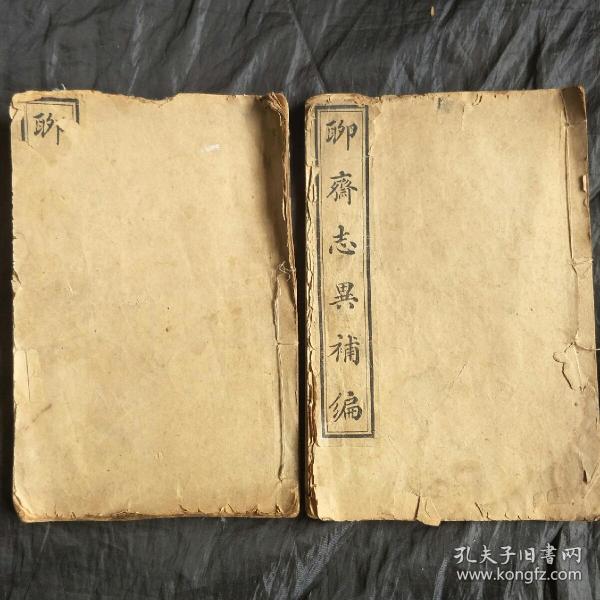 聊
聊齋志異補編
孔夫子旧書网
www.kongfz.com